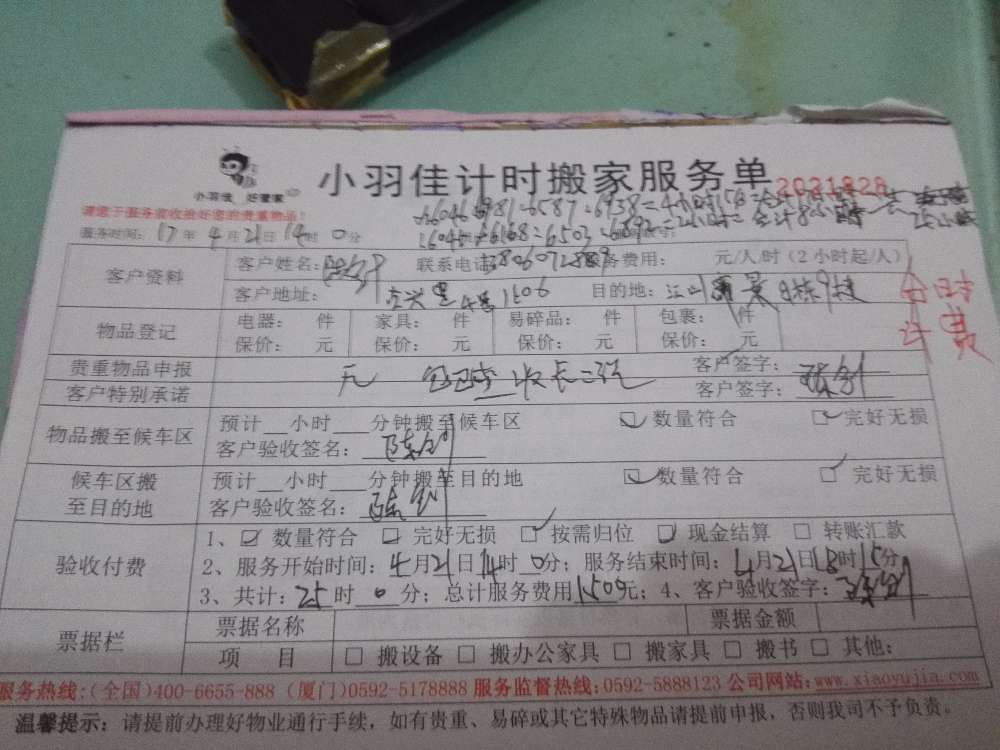 小羽佳计时搬家服务单
小羽佳 好管家
2021828
请您于服务前收拾好您的贵重物品!
服务时间: 17年4月21日14时0分
客户资料
客户姓名: 联系电话: 服务费用: 元/人.时(2小时起/人)
客户地址: 1606 目的地: 江山 8栋9楼
分时计费
物品登记
电器: 件 家具: 件 易碎品: 件 包裹: 件
保价: 元 保价: 元 保价: 元 保价: 元
贵重物品申报 无 客户签字:
客户特别承诺 客户签字:
物品搬至候车区
预计 小时 分钟搬至候车区 数量符合 完好无损
客户验收签名: 陈剑
候车区搬至目的地
预计 小时 分钟搬至目的地 数量符合 完好无损
客户验收签名: 陈剑
验收付费
1、 数量符合 完好无损 按需归位 现金结算 转账汇款
2、服务开始时间: 4月21日14时0分; 服务结束时间: 4月21日18时15分
3、共计: 25时0分; 总计服务费用1500元; 4、客户验收签字: 陈剑
票据栏
票据名称 票据金额
项 目 搬设备 搬办公家具 搬家具 搬书 其他:
服务热线:(全国)400-6655-888 (厦门)0592-5178888 服务监督热线:0592-5888123 公司网站:www.xiaoyujia.com
温馨提示: 请提前办理好物业通行手续，如有贵重、易碎或其它特殊物品请提前申报，否则我司不予负责。